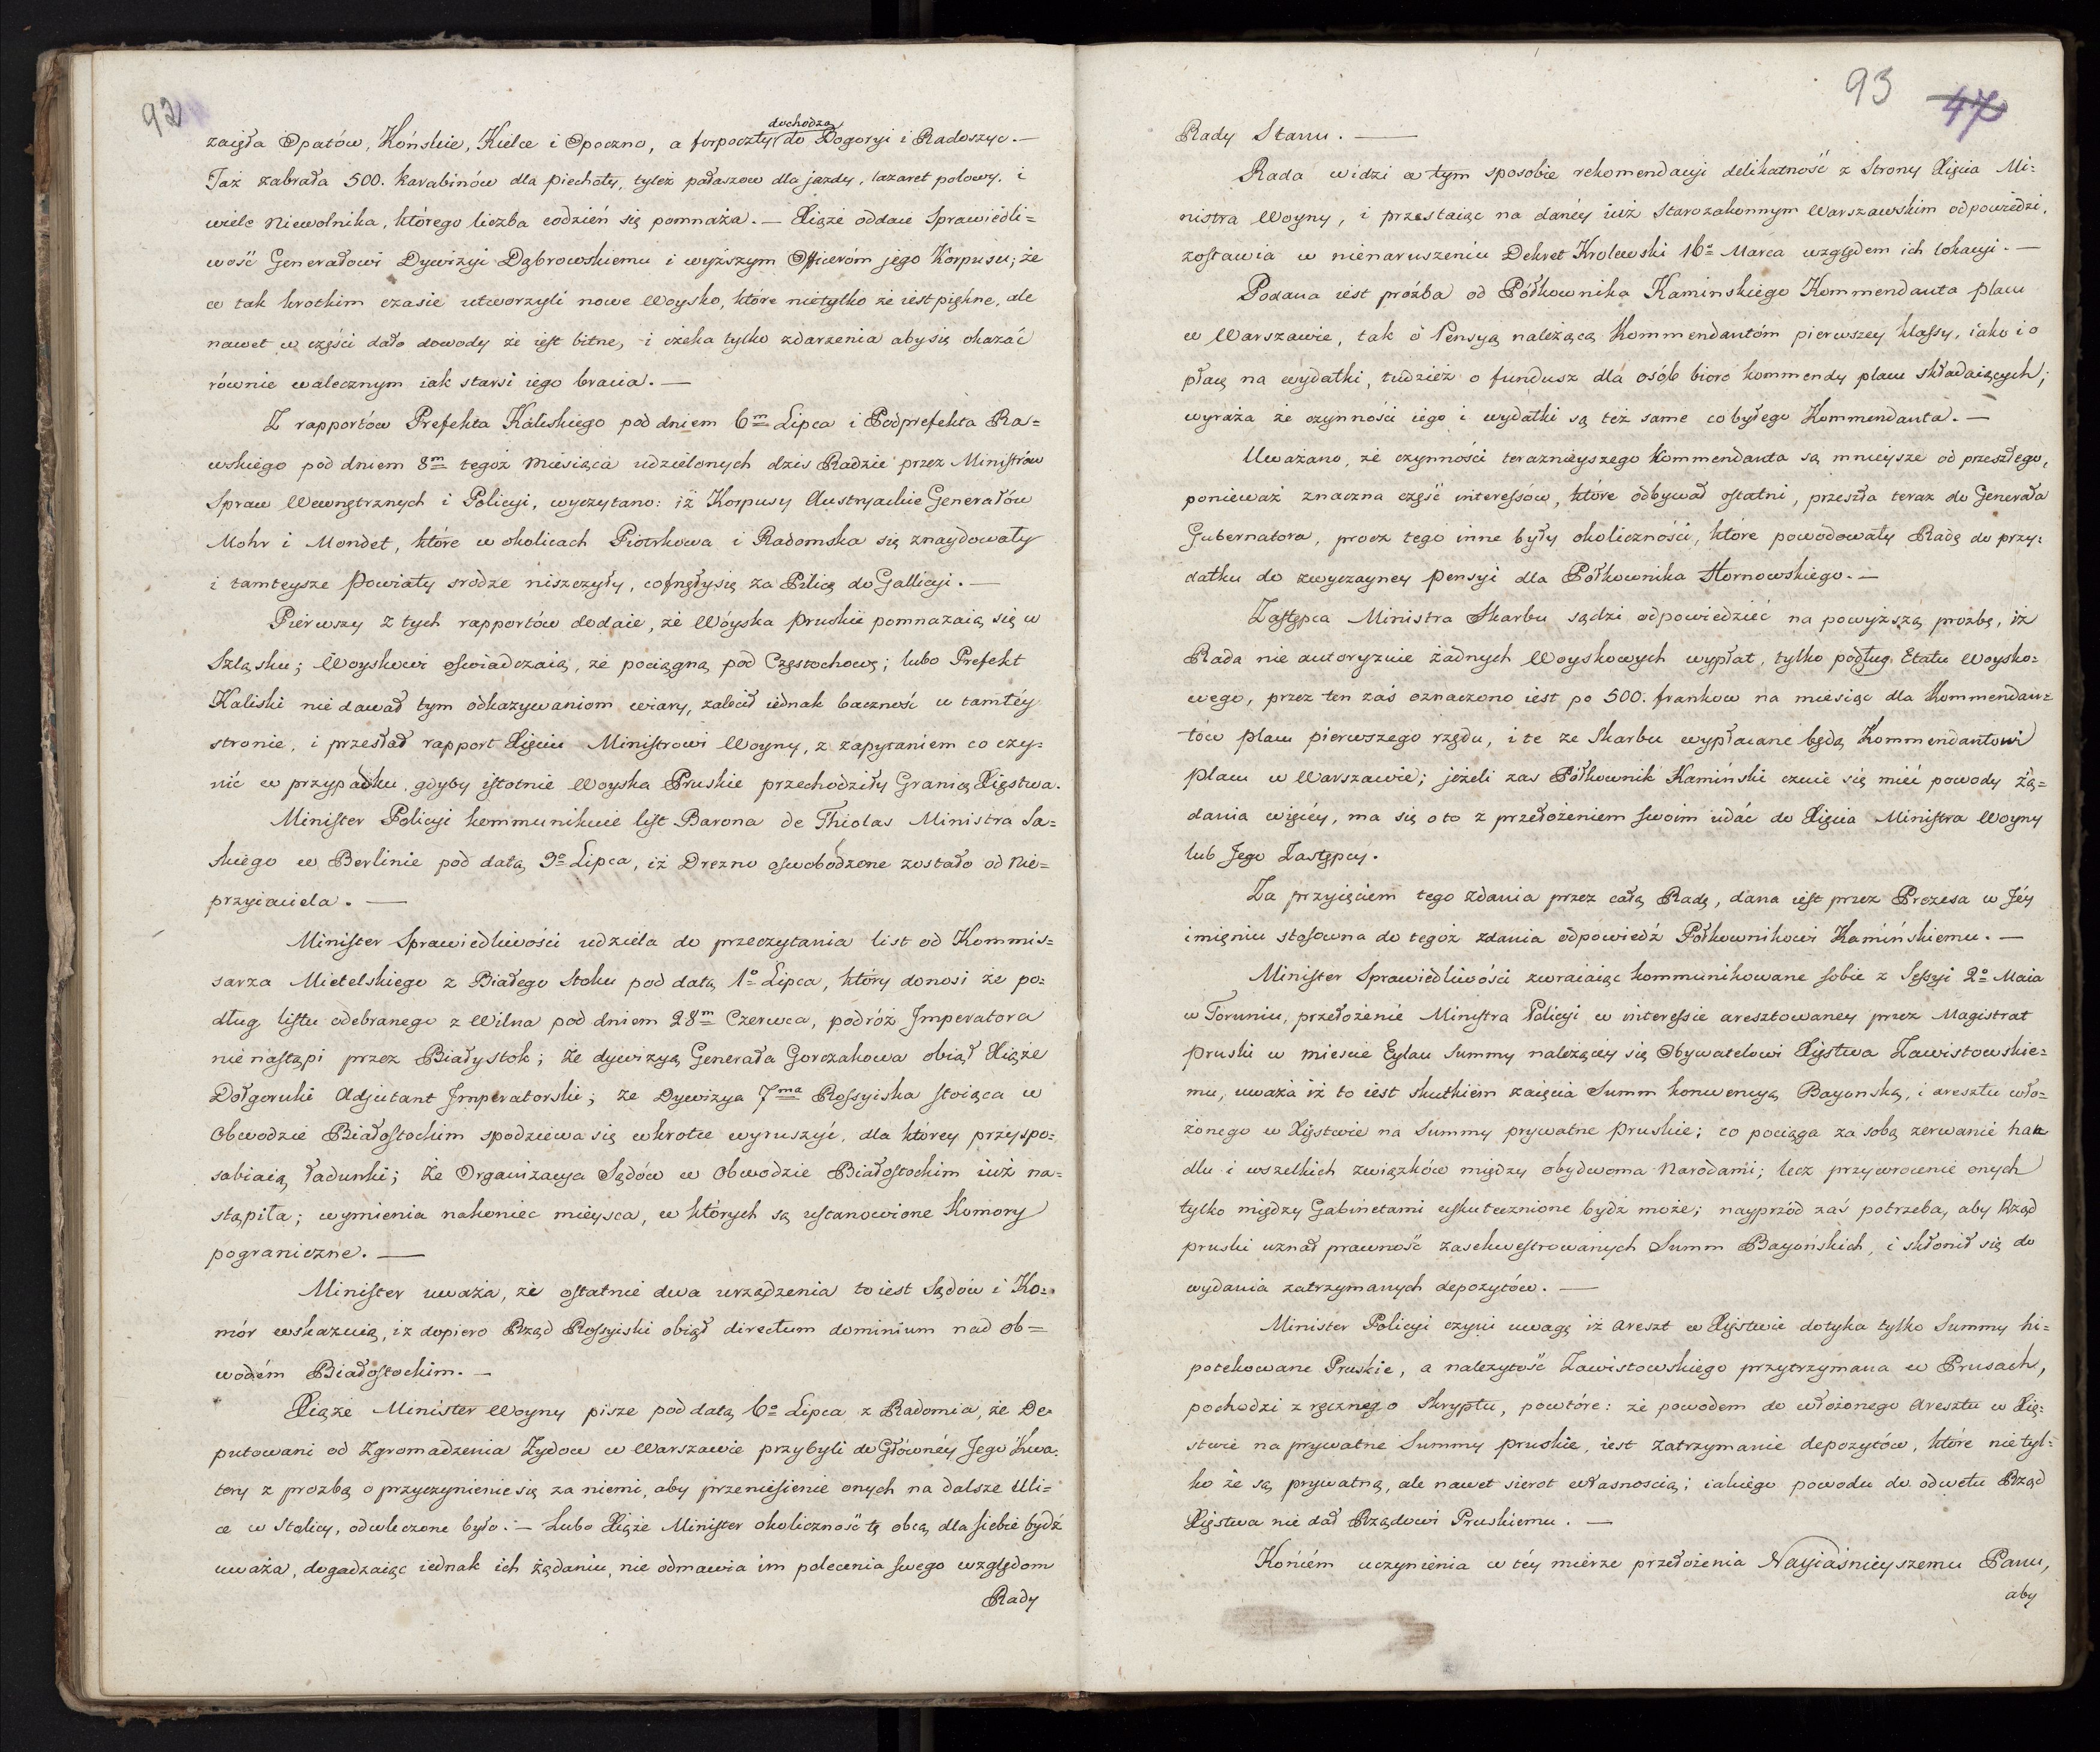 92
dochodzą
zaięła Opatów, Końskie, Kielce i Opoczno, a forpoczty do Pogoryi i Radoszyc. —
Taż zabrała 500. karabinów dla piechoty, tyleż pałaszow dla jazdy, lazaret polowy, i
wiele Niewolnika, którego liczba codzień się pomnaża. — Xiąże oddaie Sprawiedli=
wość Generałowi Dywizyi Dąbrowskiemu i wyższym Officeróm jego Korpusu; że
w tak krotkim czasie utworzyli nowe Woysko, które nietylko że iest piękne, ale
nawet w części dało dowody że iest bitne, i czeka tylko zdarzenia aby się okazać
równie walecznym iak starsi iego bracia. —
Z rapportów Prefekta Kaliskiego pod dniem 6m Lipca i Podprefekta Ra=
wskiego pod dniem 8m tegoż Miesiąca udzielonych dzis Radzie przez Ministrów
Spraw Wewnętrznych i Policyi, wyczytano: iż Korpusy Austryackie Generałów
Mohr i Mondet, które w okolicach Piotrkowa i Radomska się znaydowały
i tamteysze Powiaty srodze niszczyły, cofnęły się za Pilicę do Gallicyi. —
Pierwszy z tych rapportów dodaie, że Wóyska Pruskie pomnazaią się w
Szląsku; Woyskowi oswiadczaią, że pociągną pod Częstochowę; lubo Prefekt
Kaliski nie dawał tym odkazywaniom wiary, zalecił iednak baczność w tamtéy
stronie, i przesłał rapport Xięciu Ministrowi Woyny, z zapytaniem co czy=
nić w przypadku, gdyby istotnie Woyska Pruskie przechodziły Granicę Xięstwa.
Minister Policyi kommunikuie list Barona de Thiolas Ministra Sa=
skiego w Berlinie pod datą 9o Lipca, iż Drezno oswobodzone zostało od Nie=
przyiaciela. —
Minister Sprawiedliwości udziela do przeczytania list od Kommis=
sarza Mietelskiego z Białego Stoku pod datą 1o Lipca, który donosi że po=
dług listu odebranego z Wilna pod dniem 28m Czerwca, podróż Imperatora
nie nastąpi przez Białystok; że dywizyą Generała Gorczakowa obiął Xiąże
Dołgoruki Adjutant Imperatorski; że Dywizya 7ma Rossyiska stoiąca w
Obwodzie Białostockim spodziewa się wkrotce wyruszyć, dla którey przyspo=
sabiaią ładunki; że Organizacya Sądów w Obwodzie Białostockim iuż na=
stąpiła; wymienia nakoniec mieysca, w których są ustanowione Komory
pograniczne. —
Minister uważa, że ostatnie dwa urządzenia to iest Sądów i Ko=
mór wskazuią, iż dopiero Rząd Rossyiski obiął directum dominium nad ob=
wodém Białostockim. —
Xiąże Minister Woyny pisze pod datą 6o Lipca z Radomia, że De=
putowani od Zgromadzenia Żydow w Warszawie przybyli do Głównéy Jego Kwa=
tery z prozbą o przyczynienie się za niemi, aby przeniesienie onych na dalsze Uli=
ce w Stolicy, odwleczone było. — Lubo Xiąże Minister okoliczność tę obcą dla siebie bydź
uważa, dogadzaiąc iednak ich żądaniu, nie odmawia im polecenia swego względom
Rady
93
47
Rady Stanu. —
Rada widzi w tym sposobie rekomendacyi delikatność z Strony Xięcia Mi=
nistra Woyny, i przestaiąc na danéy iuż Starozakonnym Warszawskim odpowiedzi,
zostawia w nienaruszeniu Dekret Krolewski 16o Marca względem ich lokacyi. —
Podana iest prożba od Półkownika Kaminskiego Kommendanta placu
w Warszawie, tak o Pensyą należącą Kommendantóm pierwszey klassy, iako i o
płacę na wydatki, tudzież o fundusz dla osób bioro kommendy placu składaiących;
wyraża że czynności iego i wydatki są też same co byłego Kommendanta. —
Uważano, że czynności teraznieyszego Kommendanta są mnieysze od przeszłego,
ponieważ znaczna część interessów, które odbywał ostatni, przeszła teraz do Generała
Gubernatora, procz tego inne były okoliczności, które powodowały Radę do przy=
datku do zwyczayney pensyi dla Półkownika Hornowskiego. —
Zastępca Ministra Skarbu sądzi odpowiedzieć na powyższą prozbę, iż
Rada nie autoryzuie żadnych Woyskowych wypłat, tylko podług Etatu Woysko=
wego, przez ten zaś oznaczono iest po 500. frankow na miesiąc dla Kommendan=
tów placu pierwszego rzędu, i te ze Skarbu wypłacane będą Kommendantowi
placu w Warszawie; jeżeli zas Półkownik Kamiński czuie się mieć powody żą=
dania więcéy, ma się o to z przełożeniem swoim udać do Xięcia Ministra Woyny
lub Jego Zastępcy.
Za przyięciem tego zdania przez całą Radę, dana iest przez Prezesa w Jéy
imięniu stosowna do tegoż zdania odpowiedź Półkownikowi Kamińskiemu. —
Minister Sprawiedliwości zwraiaiąc kommunikowane sobie z Sessyi 2o Maia
w Toruniu, przełożenie Ministra Policyi w interessie aresztowaney przez Magistrat
pruski w miescie Eylau Summy należącéy się Obywatelowi Xięstwa Zawistowskie=
mu, uważa iż to iest skutkiem zaięcia Summ konwencyą Bayonską, i aresztu wło=
żonego w Xięstwie na Summy prywatne Pruskie; co pociąga za sobą zerwanie han
dlu i wszelkich związków między obydwoma Narodami; lecz przywrocenie onych
tylko między Gabinetami uskutecznione bydź może; nayprzód zaś potrzeba, aby Rząd
pruski uznał prawność zasekwestrowanych Summ Bayońskich, i skłonił się do
wydania zatrzymanych depozytów. —
Minister Policyi czyni uwagę iż areszt w Xięstwie dotyka tylko Summy hi=
potekowane Pruskie, a należytość Zawistowskiego przytrzymana w Prusach,
pochodzi z ręcznego Skryptu, powtóre: że powodem do włożonego Aresztu w Xię=
stwie na prywatne Summy pruskie, iest zatrzymanie depozytów, które nietyl=
ko że są prywatną, ale nawet sierot własnoscią; iakiego powodu do odwetu Rząd
Xięstwa nie dał Rządowi Pruskiemu. —
Końcém uczynienia w téy mierze przełożenia Nayiaśnieyszemu Panu,
aby